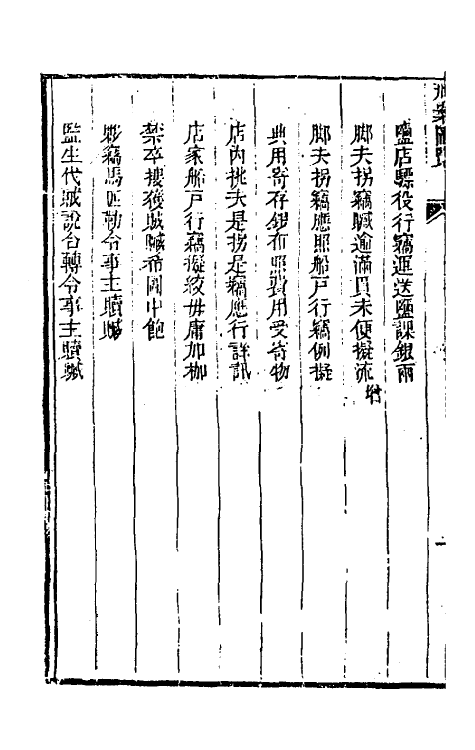 鹽店縣役行竊運送鹽課銀兩
腳夫拐竊贓逾滿貫未便擬流 增
腳夫拐竊應照船戶行竊例擬
典用寄存銀布照費用受寄物
店內挑夫是拐是竊應行詳訊
店家船戶行竊擬絞毋庸加枷
禁卒搜獲賊贓希圖中飽
夥竊馬匹勒令事主贖贓
監生代賊說合轉令事主贖贓